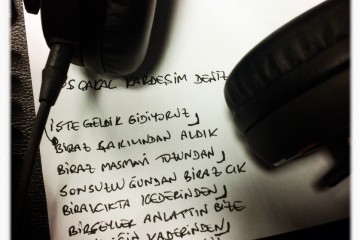 KARDEŞİM DENİZ
İŞTE GELDİK GİDİYORUZ
BİRAZ ŞAKILINDAN ALDIK
BİRAZ MASMAVİ TOZUNDAN
SONSUZLUĞUNDAN BİRAZ ÇIK
BİRALCIKTA KEDERİNDEN
BİRŞEYLER ANLATTIN BİZE
KADERİNDEN